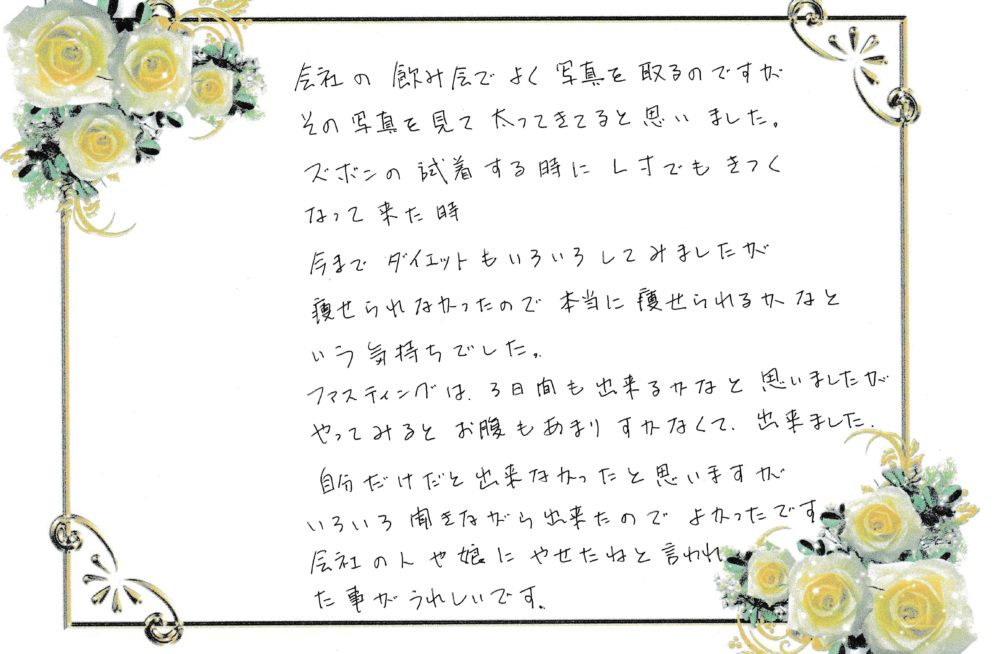 会社の飲み会でよく写真を取るのですが
その写真を見て太ってきてると思いました。
ズボンの試着する時にLすでもきつく
なって来た時
今までダイエットもいろいろしてみましたが
痩せられなかったので本当に痩せられるかなと
いう気持ちでした。
ファスティングは、3日間も出来るかなと思いましたが
やってみるとお腹もあまりすかなくて、出来ました。
自分だけだと出来なかったと思いますが
いろいろ聞きながら出来たのでよかったです
会社の人や娘にやせたねと言われ
た事がうれしいです。